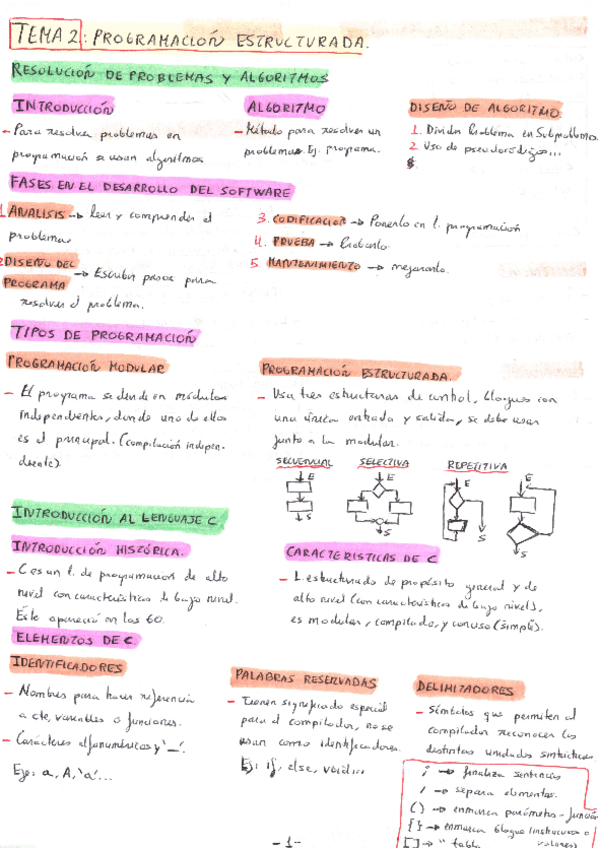 TEMA 2: PROGRAMACIÓN ESTRUCTURADA.
RESOLUCIÓN DE PROBLEMAS Y ALGORITMOS
INTRODUCCIÓN
– Para resolver problemas en
programación se usan algoritmos
ALGORITMO
– Método para resolver un
problema. Ej. programa.
DISEÑO DE ALGORITMO
1. Dividir Problema en Subproblemas
2. Uso de pseudocódigos...
FASES EN EL DESARROLLO DEL SOFTWARE
1. ANALISIS → leer y comprender el
problema.
2. DISEÑO DEL
PROGRAMA → Escribir pasos para
resolver el problema.
3. CODIFICACIÓN → Ponerlo en l. programación
4. PRUEBA → Probarlo.
5. MANTENIMIENTO → mejorarlo.
TIPOS DE PROGRAMACIÓN
PROGRAMACIÓN MODULAR
– El programa se divide en módulos
independientes, donde uno de ellos
es el principal. (compilación indepen-
diente).
PROGRAMACIÓN ESTRUCTURADA.
– Usa tres estructuras de control, bloques con
una única entrada y salida, se debe usar
junto a la modular.
SECUENCIAL SELECTIVA REPETITIVA
E E E E
S S S S
INTRODUCCIÓN AL LENGUAJE C
INTRODUCCIÓN HISTÓRICA.
– C es un l. de programación de alto
nivel con características de bajo nivel.
Este apareció en los 60.
CARACTERISTICAS DE C
– L. estructurado de propósito general y de
alto nivel (con características de bajo nivel),
es modular, compilado, y conciso (simple).
ELEMENTOS DE C.
IDENTIFICADORES
– Nombres para hacer referencia
a cte, variables o funciones.
– Carácteres alfanuméricos y '_'.
Ej: a, A, 'a'...
PALABRAS RESERVADAS
– Tienen significado especial
para el compilador, no se
usan como identificadores.
Ej: if, else, void...
DELIMITADORES
– Símbolos que permiten al
compilador reconocer las
distintas unidades sintácticas
; → finaliza sentencias
, → separa elementos.
( ) → enmarca parámetros - función
{ } → enmarca bloque (instrucciones o
valores)
[ ] → " tabla
- 1 -